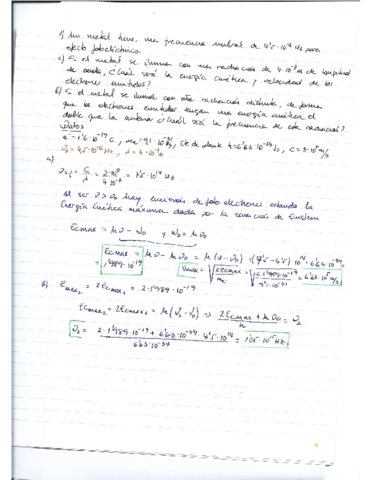 1) Un metal tiene una frecuencia umbral de 4'5·10¹⁴ Hz para
efecto fotoeléctrico.
a) Si el metal se ilumina con una radiación de 4·10⁻⁷ m de longitud
de onda, ¿Cuál será la energía cinética y velocidad de los
electrones emitidos?
b) Si el metal se ilumina con otra radiación distinta, de forma
que los electrones emitidos tengan una energía cinética el
doble que la anterior ¿Cuál será la frecuencia de esta radiación?
Datos
e⁻ = 1'6·10⁻¹⁹ C, me = 9'1·10⁻³¹ kg, Cte de Plank h = 6'63·10⁻³⁴ Js, c = 3·10⁸ m/s
ν₀ = 4,5·10¹⁴ Hz, λ = 4·10⁻⁷ m
a)
ν = c/λ = 3·10⁸/4·10⁻⁷ = 7'5·10¹⁴ Hz
Al ser ν > ν₀ hay emisión de foto electrones estando la
Energía Cinética máxima dada por la ecuación de Einstein
Ecmax = hν - W₀ y W₀ = hν₀
Ecmax = hν - hν₀ = h(ν - ν₀) = (7'5 - 4'5)·10¹⁴·6'63·10⁻³⁴ =
= 1'989·10⁻¹⁹
Vmax = √(2Ecmax/me) = √(2·1'989·10⁻¹⁹/9'1·10⁻³¹) = 6'61·10⁵ m/s
b) Emax₂ = 2Ecmax₁ = 2·1'989·10⁻¹⁹
Ecmax₂ = 2Ecmax₁ = h(ν₂ - ν₀) ⇒ (2Ecmax + hν₀)/h = ν₂
ν₂ = (2·1'989·10⁻¹⁹ + 6'63·10⁻³⁴·4'5·10¹⁴)/6'63·10⁻³⁴ = 1'05·10¹⁵ Hz